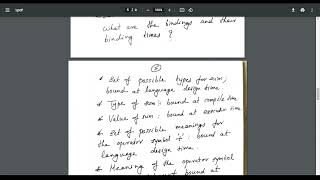 what are the bindings and their
binding times ?
②
* Set of possible types for sum;
bound at language design time.
* Type of sum : bound at compile time
* Value of sum : bound at execution time
* Set of possible meanings for
the operator symbol '+' : bound at
language design time.
* Meaning of the operator symbol
bound at